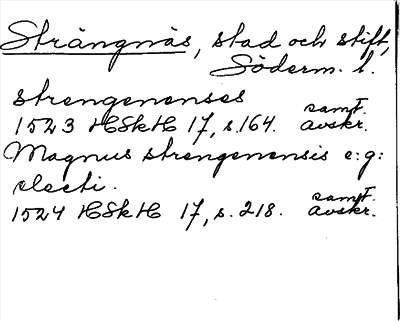 Strängnäs, stad och stift,
Söderm. l.
strengenenses
1523 HSkH 17, s. 164. samt. avskr.
Magnus strengenensis e:g:
electi.
1524 HSkH 17, s. 218. samt. avskr.